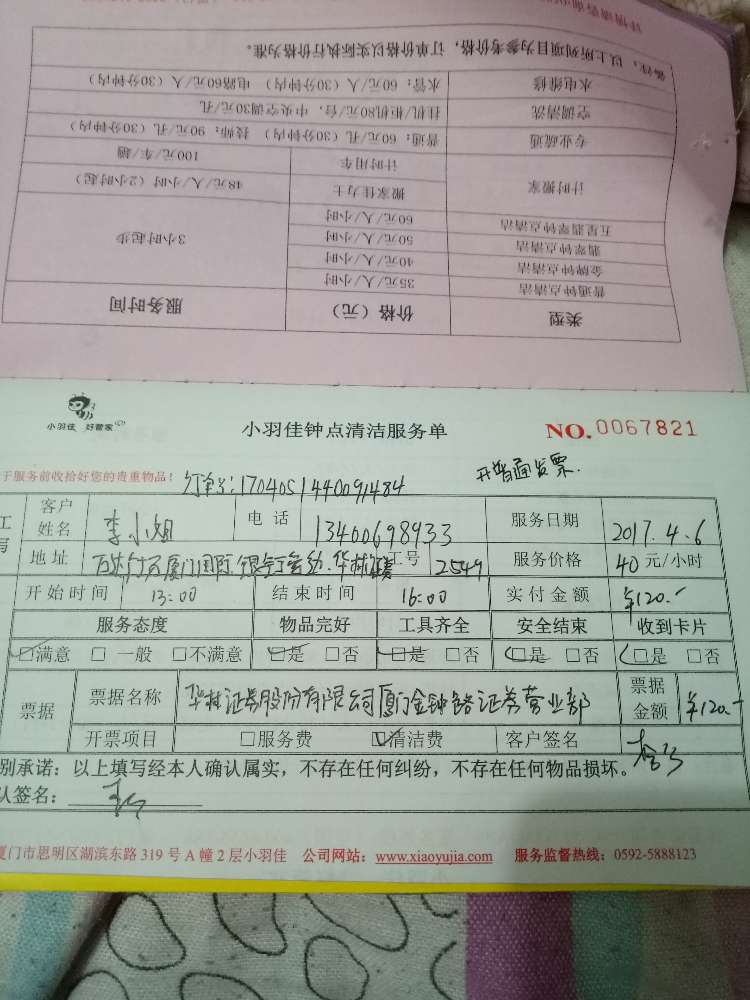 备注：以上所列项目为参考价格，订单价格以实际执行价格为准。
水电维修 水管：60元/人（30分钟内） 电路60元/人（30分钟内）
空调清洗 挂机/柜机80元/台，中央空调30元/孔
专业疏通 普通：60元/孔（30分钟内） 技师：90元/孔（30分钟内）
计时搬家 计时用车 100元/车/趟
搬家佳力士 48元/人/小时（2小时起）
五星翡翠钟点清洁 60元/人/小时 3小时起步
翡翠钟点清洁 50元/人/小时
金牌钟点清洁 40元/人/小时
普通钟点清洁 35元/人/小时
类型 价格（元） 服务时间
小羽佳 好管家
小羽佳钟点清洁服务单 NO.0067821
于服务前收拾好您的贵重物品！ 订单号：1704051440091484 开普通发票.
客户姓名 李小姐 电话 13400698933 服务日期 2017.4.6
地址 厦门国际银行 华林证券 工号 2549 服务价格 40元/小时
开始时间 13:00 结束时间 16:00 实付金额 ¥120.-
服务态度 物品完好 工具齐全 安全结束 收到卡片
□满意 □一般 □不满意 □是 □否 □是 □否 □是 □否 □是 □否
票据 票据名称 华林证券股份有限公司厦门金钟路证券营业部 票据金额 ¥120.-
开票项目 □服务费 □清洁费 客户签名
别承诺：以上填写经本人确认属实，不存在任何纠纷，不存在任何物品损坏。
认签名：
厦门市思明区湖滨东路 319 号 A 幢 2 层小羽佳 公司网站：www.xiaoyujia.com 服务监督热线：0592-5888123